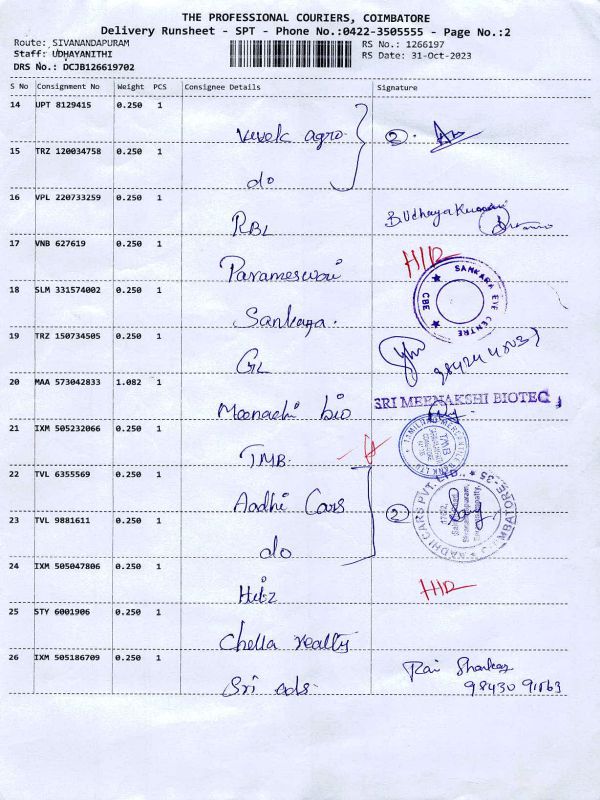 THE PROFESSIONAL COURIERS, COIMBATORE
Delivery Runsheet - SPT - Phone No.:0422-3505555 - Page No.:2
Route: SIVANANDAPURAM
RS No.: 1266197
Staff: UDHAYANITHI
RS Date: 31-Oct-2023
DRS No.: DCJB126619702
S No Consignment No Weight PCS Consignee Details Signature
14 UPT 8129415 0.250 1
Vivek agro (2).
15 TRZ 120034758 0.250 1
do
16 VPL 220733259 0.250 1
RBL B.Udhaya Kumar
17 VNB 627619 0.250 1
Parameswari HID
18 SLM 331574002 0.250 1
SANKARA EYE CENTRE CBE
Sankara.
19 TRZ 150734505 0.250 1
GL
20 MAA 573042833 1.082 1
Meenachi bio SRI MEENAKSHI BIOTEC
21 IXM 505232066 0.250 1
TMB. TAMILNAD MERCANTILE BANK LTD TMB
22 TVL 6355569 0.250 1
Aadhi Cars (2) AADHI CARS PVT. LTD., COIMBATORE-35
23 TVL 9881611 0.250 1
do
24 IXM 505047806 0.250 1
Hitz HID
25 STY 6001906 0.250 1
Chella realty
26 IXM 505186709 0.250 1
Rai Shankar
Sri ads.